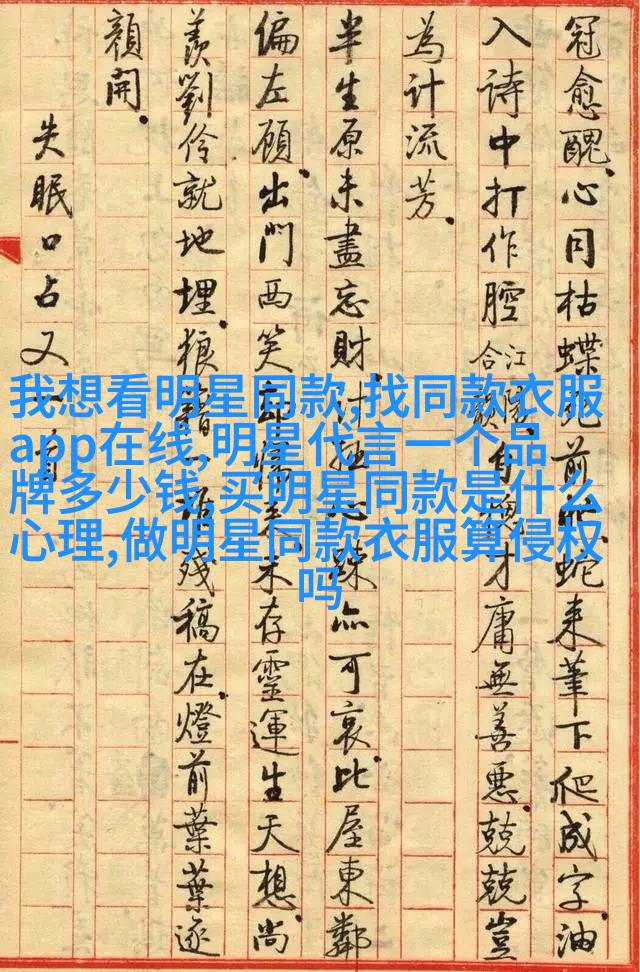 冠愈醜。心同枯蝶死前飛。蛇来筆下爬成字。油
入詩中打作腔江陽合韻。自愧才庸無善惡。兢兢豈
為計流芳。
半生原未盡忘財。計拙心疎亦可哀。比屋東鄰
偏左顧。出門西笑却歸来。未存靈運生天想。尚
羨劉伶就地埋。狼藉一殘稿在。燈前葉葉逐
顏開。
失眠口占又一首
我想看明星同款,找同款衣服
app在线,明星代言一个品
牌多少钱,买明星同款是什么
心理,做明星同款衣服算侵权
吗